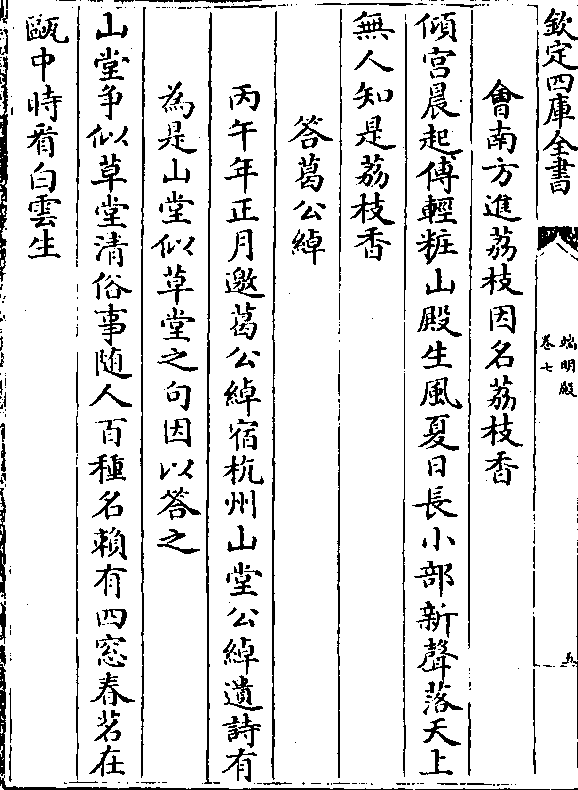 欽定四庫全書
端明殿
卷七
五
會南方進荔枝因名荔枝香
傾宫晨起傅輕粧山殿生風夏日長小部新聲落天上
無人知是荔枝香
答葛公綽
丙午年正月邀葛公綽宿杭州山堂公綽遺詩有
為是山堂似草堂之句因以答之
山堂争似草堂清俗事随人百種名賴有四窓春茗在
甌中時看白雲生